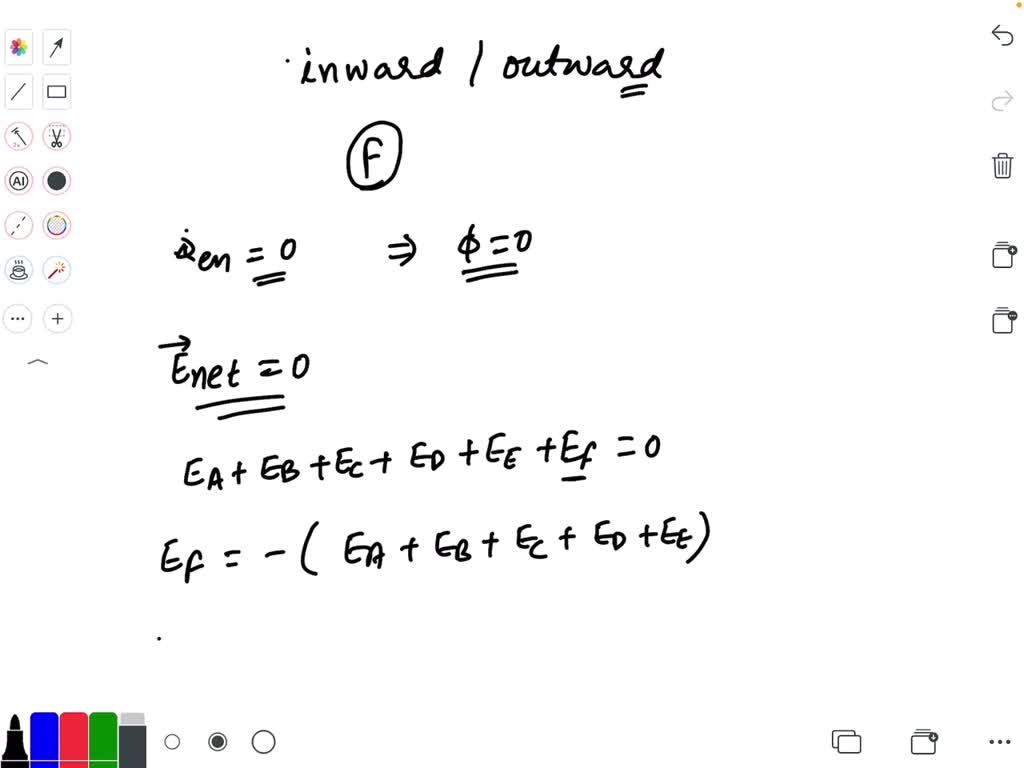 inward / outward
F
en = 0 ⇒ ϕ = 0
Enet = 0
EA + EB + EC + ED + EE + Ef = 0
Ef = - ( EA + EB + EC + ED + EE )
AI
2x